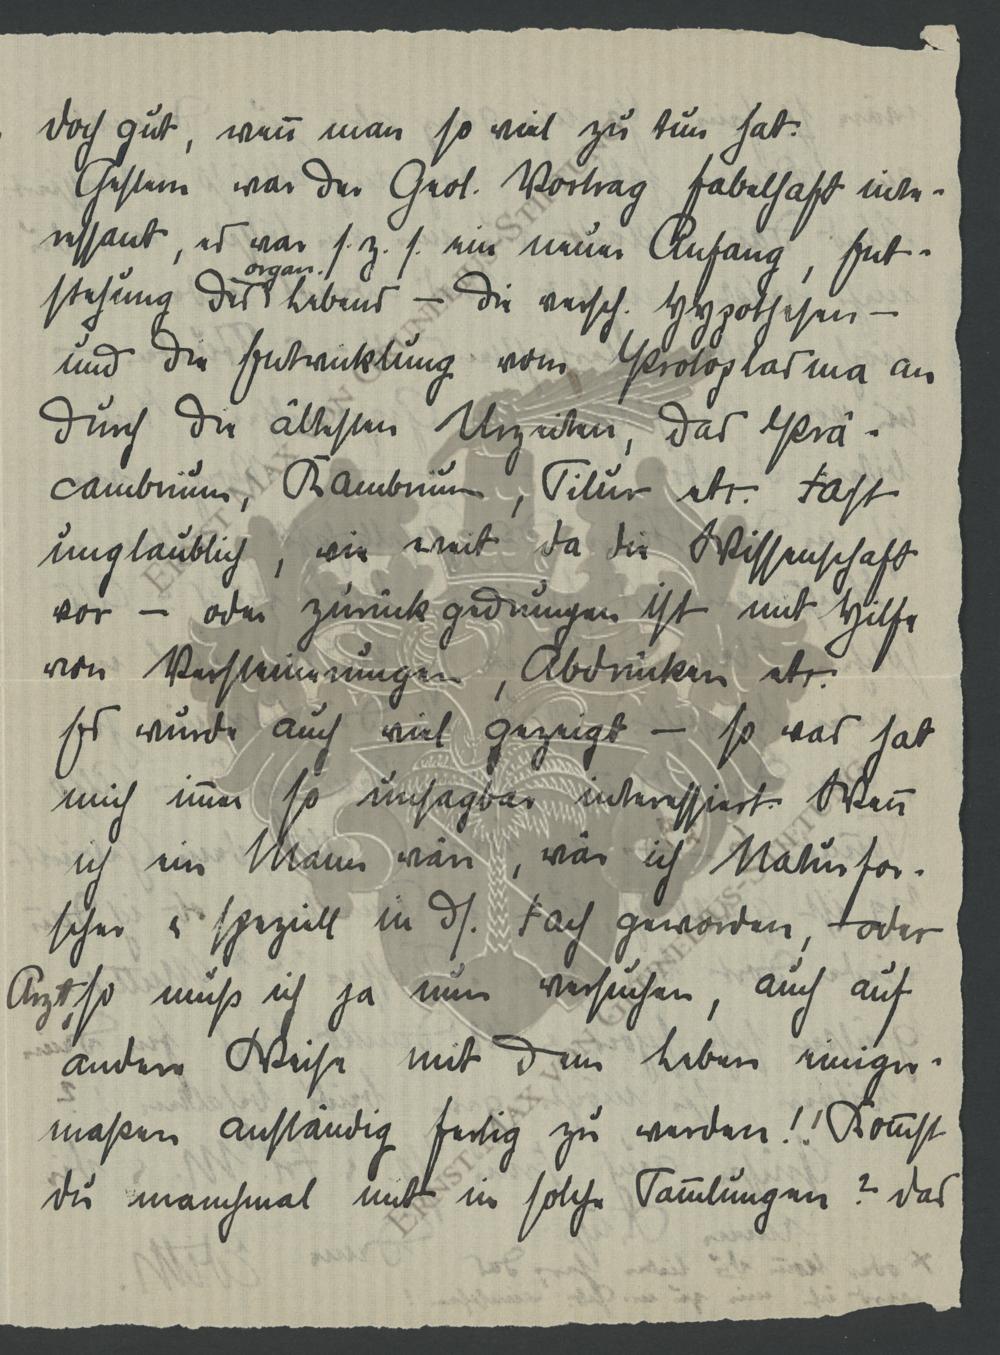 doch gut, weñ man so viel zu tun hat.
Gestern war der Geol. Vortrag fabelhaft inte-
ressant, es war s. z. s. ein neuer Anfang, Ent-
organ.
stehung des Lebens – die versch. Hypothesen –
und die Entwicklung vom Protoplasma an
durch die ältesten Urzeiten, das Prä-
cambrium, Kambrium, Silur etc. Fast
unglaublich, wie weit da die Wissenschaft
vor – oder zurück gedrungen ist mit Hilfe
von Versteinerungen, Abdrücken etc.
Es wurde auch viel gezeigt – so was hat
mich im̃er so unsagbar interessiert. Weñ
ich ein Mann wär, wär ich Naturfor-
scher u speziell in ds. Fach geworden, – oder
Arzt, so muß ich ja nun versuchen, auch auf
andere Weise mit dem Leben einiger-
maßen anständig fertig zu werden!! Kom̃st
du manchmal mit in solche Sam̃lungen? das
ERNST MAX V